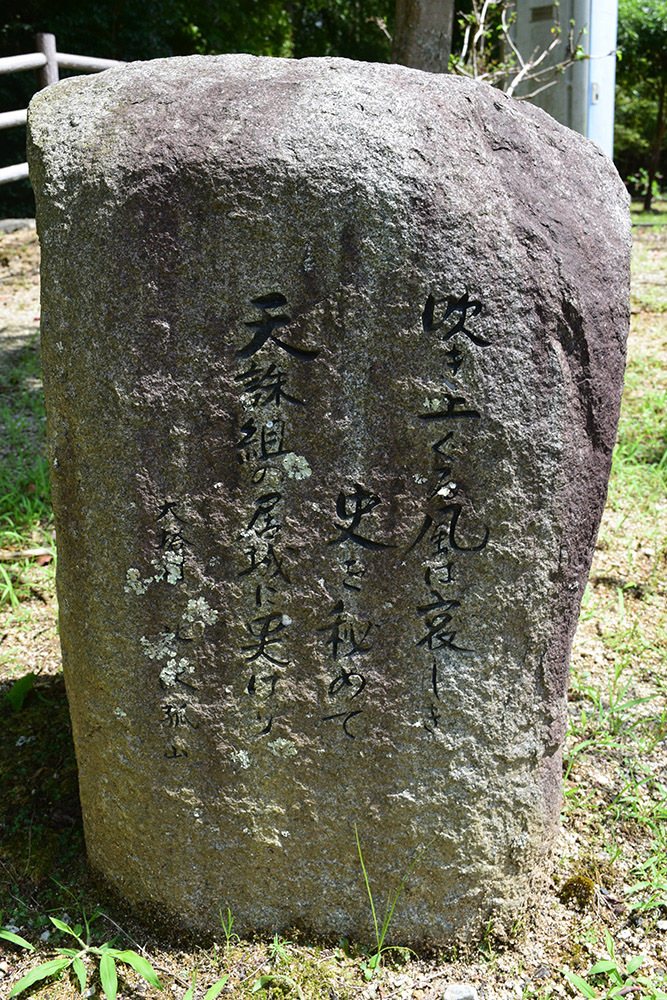 吹き上ぐる風は哀しき
史を秘めて
天誅組の居城に実けり
大塔村 北 孤山